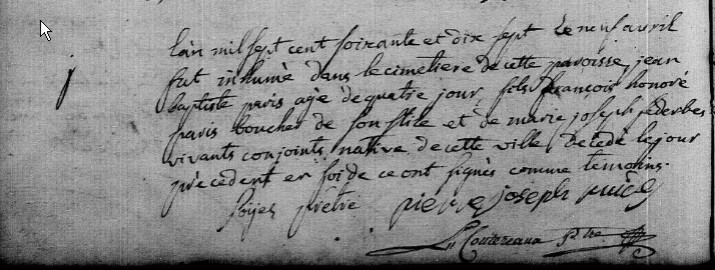 L'an mil sept cent soixante et dix sept le neuf avril
fut inhumé dans le cimetiere de cette paroisse jean
baptiste paris agé de quatre jour, fils françois honoré
paris boucher de son stile et de marie joseph
vivants conjoints native de cette ville, décédé le jour
précédent en foi de ce ont signés comme témoins.
prêtre pierre joseph
Ptre